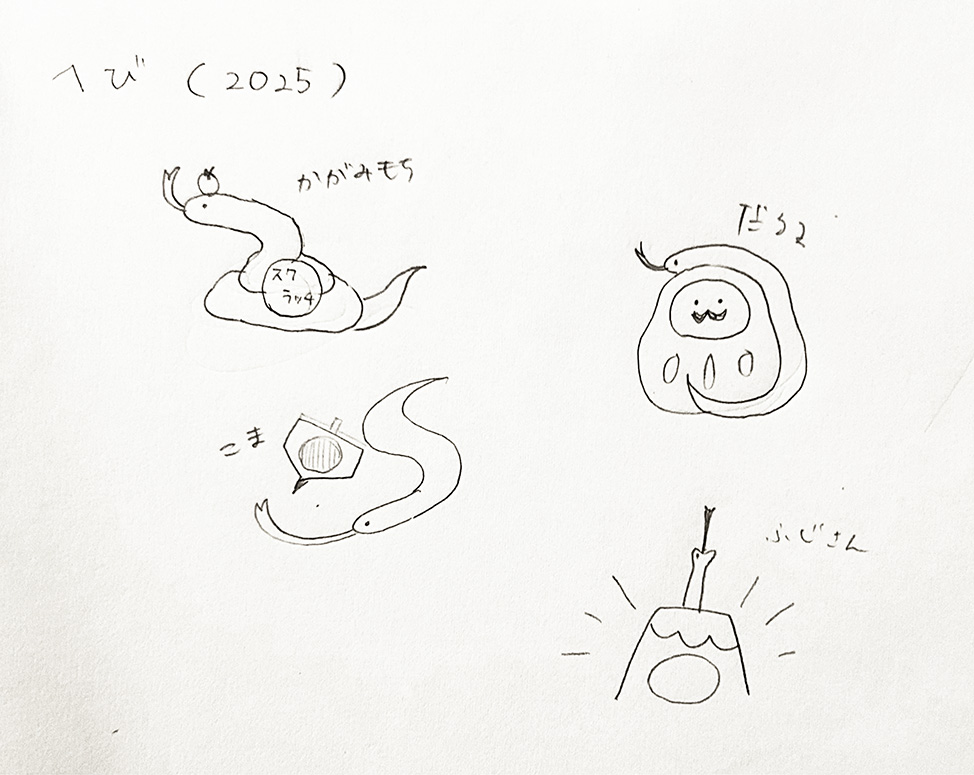 へび (2025)
かがみもち
スク
ラッチ
だるま
こま
ふじさん